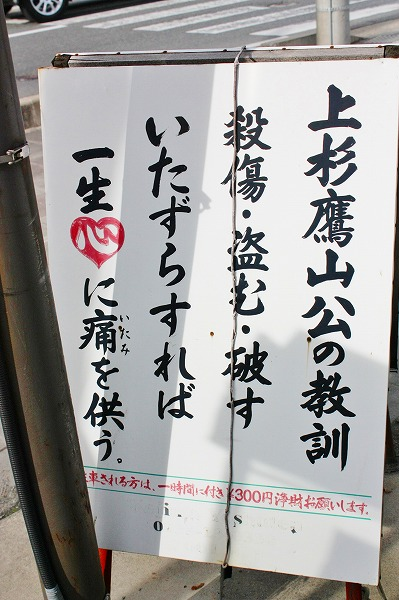 上杉鷹山公の教訓
殺傷・盗む・破す
いたずらすれば
一生心に痛を供う。
いたみ
車される方は、一時間に付き¥300円浄財お願いします。